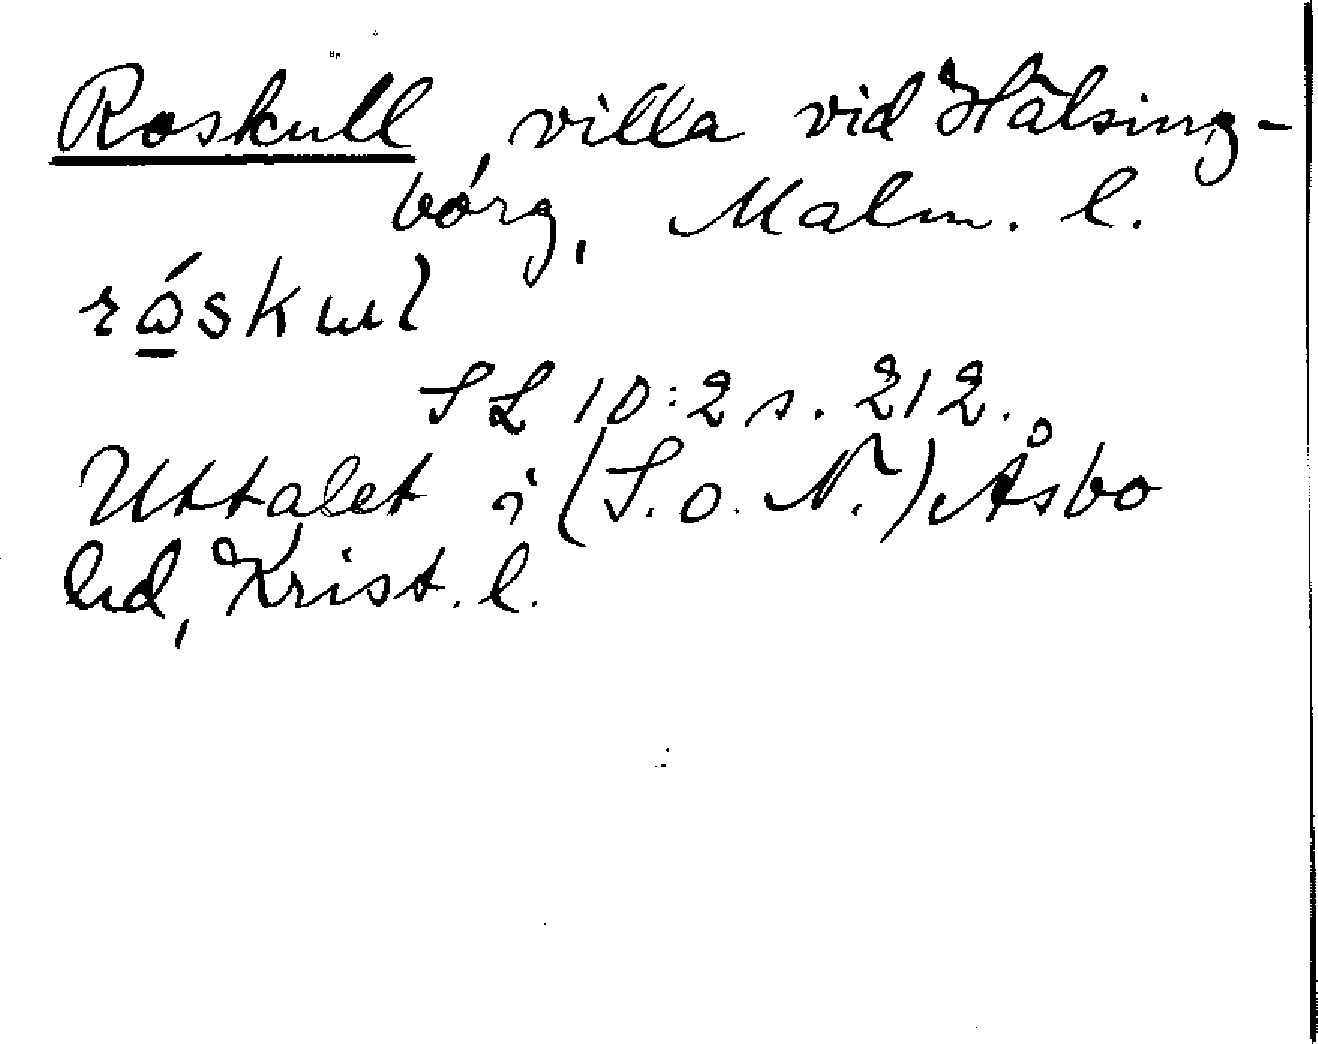 Roskull, villa vid Hälsing-
borg, Malm. l.
råskɯl
SL 10:2 s. 212.
Uttalet i (S. o. N.) Åsbo
hd, Krist. l.